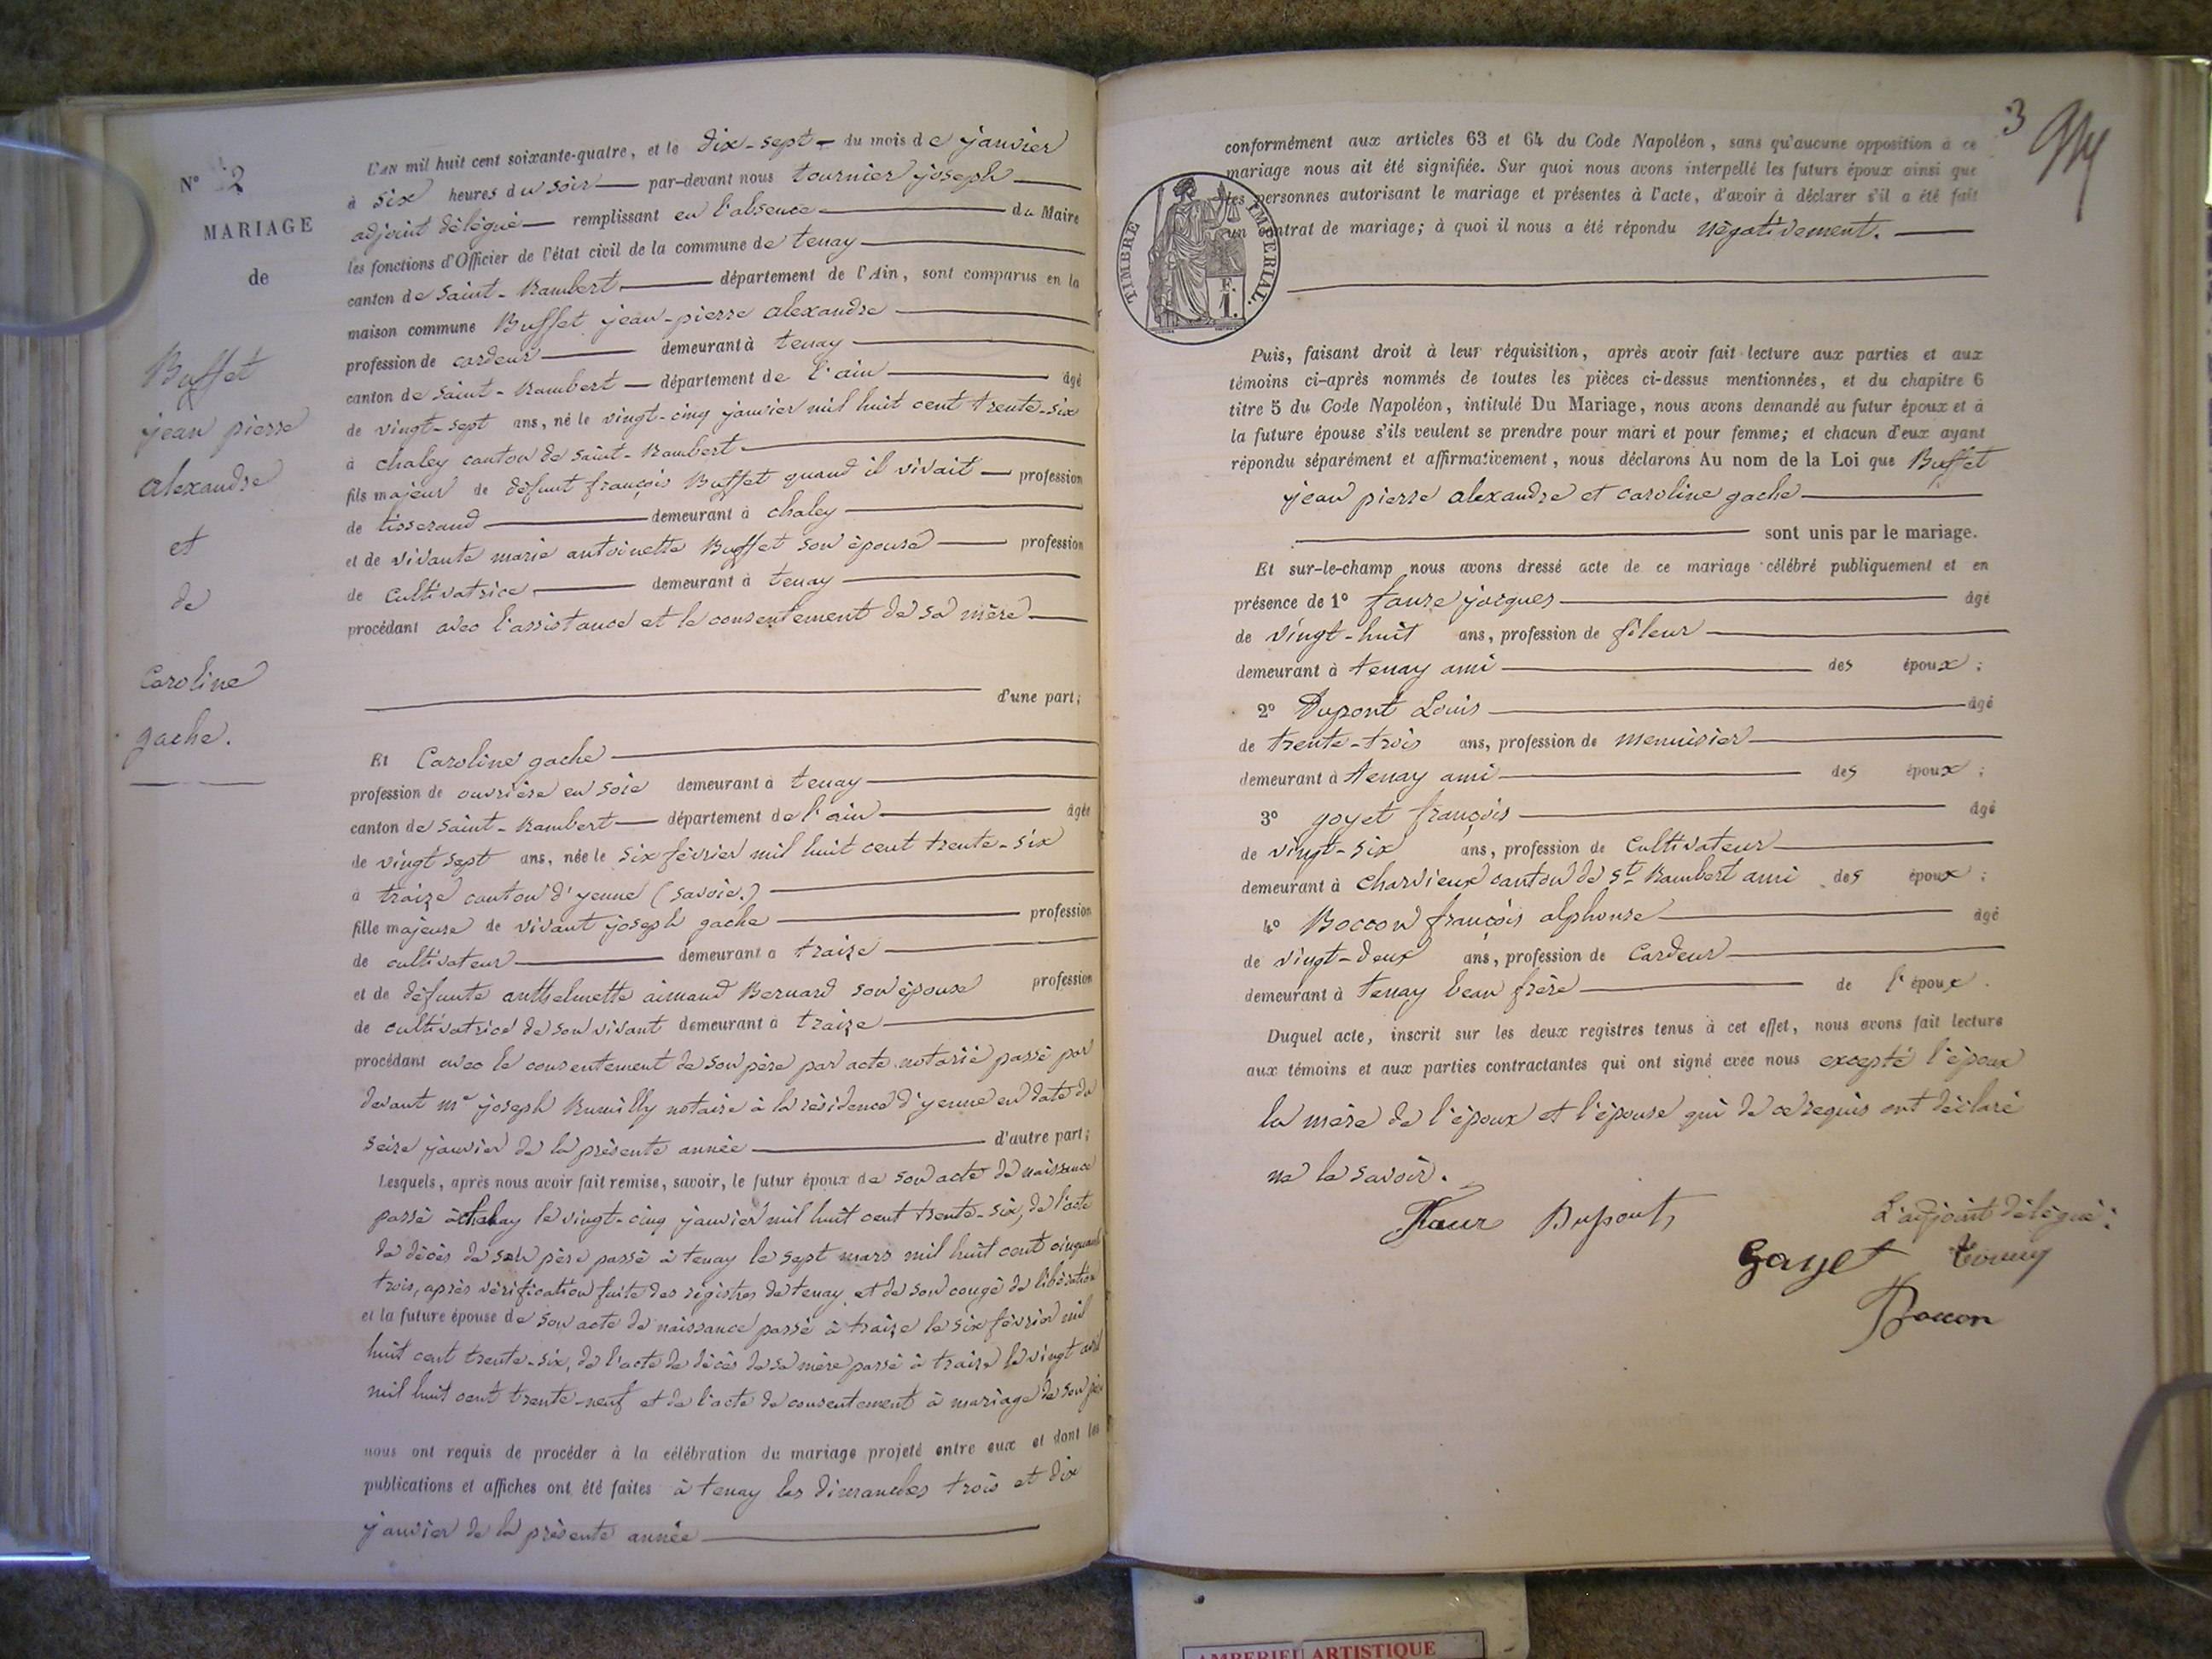 N° 2
MARIAGE
de
Buffet
jean pierre
alexandre
et
de
Caroline
gache.
L'AN mil huit cent soixante-quatre, et le dix-sept du mois de janvier
à six heures du soir par-devant nous tournier joseph
adjoint délégué remplissant en l'absence du Maire
les fonctions d'Officier de l'état civil de la commune de tenay
canton de saint-Rambert département de l'Ain, sont comparus en la
maison commune Buffet jean-pierre alexandre
profession de cardeur demeurant à tenay
canton de saint-Rambert département de l'ain âgé
de vingt-sept ans, né le vingt-cinq janvier mil huit cent trente-six
à chaley canton de saint-Rambert
fils majeur de défunt françois Buffet quand il vivait profession
de tisserand demeurant à chaley
et de vivante marie antoinette Buffet son épouse profession
de cultivatrice demeurant à tenay
procédant avec l'assistance et le consentement de sa mère
d'une part;
Et Caroline gache
profession de ouvrière en soie demeurant à tenay
canton de saint-Rambert département de l'ain âgée
de vingt sept ans, née le six février mil huit cent trente-six
à traize canton d'yenne (savoie.)
fille majeure de vivant joseph gache profession
de cultivateur demeurant à traize
et de défunte anthelmette aimand Bernard son épouse profession
de cultivatrice de son vivant demeurant à traize
procédant avec le consentement de son père par acte notarié passé par
devant me joseph Rumilly notaire à la résidence d'yenne en date du
seize janvier de la présente année d'autre part;
Lesquels, après nous avoir fait remise, savoir, le futur époux de son acte de naissance
passé à chaley le vingt-cinq janvier mil huit cent trente-six, de l'acte
de décès de son père passé à tenay le sept mars mil huit cent cinquante
trois, après vérification faite des régistres de tenay et de son congé de libération
et la future épouse de son acte de naissance passé à traize le six février mil
huit cent trente-six, de l'acte de décès de sa mère passé à traize le vingt avril
mil huit cent trente-neuf et de l'acte de consentement à mariage de son père
nous ont requis de procéder à la célébration du mariage projeté entre eux et dont les
publications et affiches ont été faites à tenay les dimanches trois et dix
janvier de la présente année
3
conformément aux articles 63 et 64 du Code Napoléon, sans qu'aucune opposition à ce
mariage nous ait été signifiée. Sur quoi nous avons interpellé les futurs époux ainsi que
les personnes autorisant le mariage et présentes à l'acte, d'avoir à déclarer s'il a été fait
un contrat de mariage; à quoi il nous a été répondu négativement.
TIMBRE IMPERIAL.
1 F.
Puis, faisant droit à leur réquisition, après avoir fait lecture aux parties et aux
témoins ci-après nommés de toutes les pièces ci-dessus mentionnées, et du chapitre 6
titre 5 du Code Napoléon, intitulé Du Mariage, nous avons demandé au futur époux et à
la future épouse s'ils veulent se prendre pour mari et pour femme; et chacun d'eux ayant
répondu séparément et affirmativement, nous déclarons Au nom de la Loi que Buffet
jean pierre alexandre et caroline gache
sont unis par le mariage.
Et sur-le-champ nous avons dressé acte de ce mariage célébré publiquement et en
présence de 1° faure jacques âgé
de vingt-huit ans, profession de fileur
demeurant à tenay ami des époux;
2° Dupont Louis âgé
de trente-trois ans, profession de menuisier
demeurant à tenay ami des époux;
3° goyet françois âgé
de vingt-six ans, profession de cultivateur
demeurant à charvieux canton de St Rambert ami des époux;
4° Boccon françois alphonse âgé
de vingt-deux ans, profession de Cardeur
demeurant à tenay beau frère de l'époux.
Duquel acte, inscrit sur les deux registres tenus à cet effet, nous avons fait lecture
aux témoins et aux parties contractantes qui ont signé avec nous excepté l'époux
la mère de l'époux et l'épouse qui de ce requis ont déclaré
ne le savoir.
Faure Dupont, L'adjoint délégué:
Goyet
Boccon
AMBERIEU ARTISTIQUE